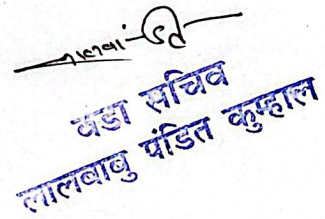 वडा सचिव
लालबाबु पंडित कुम्हाल